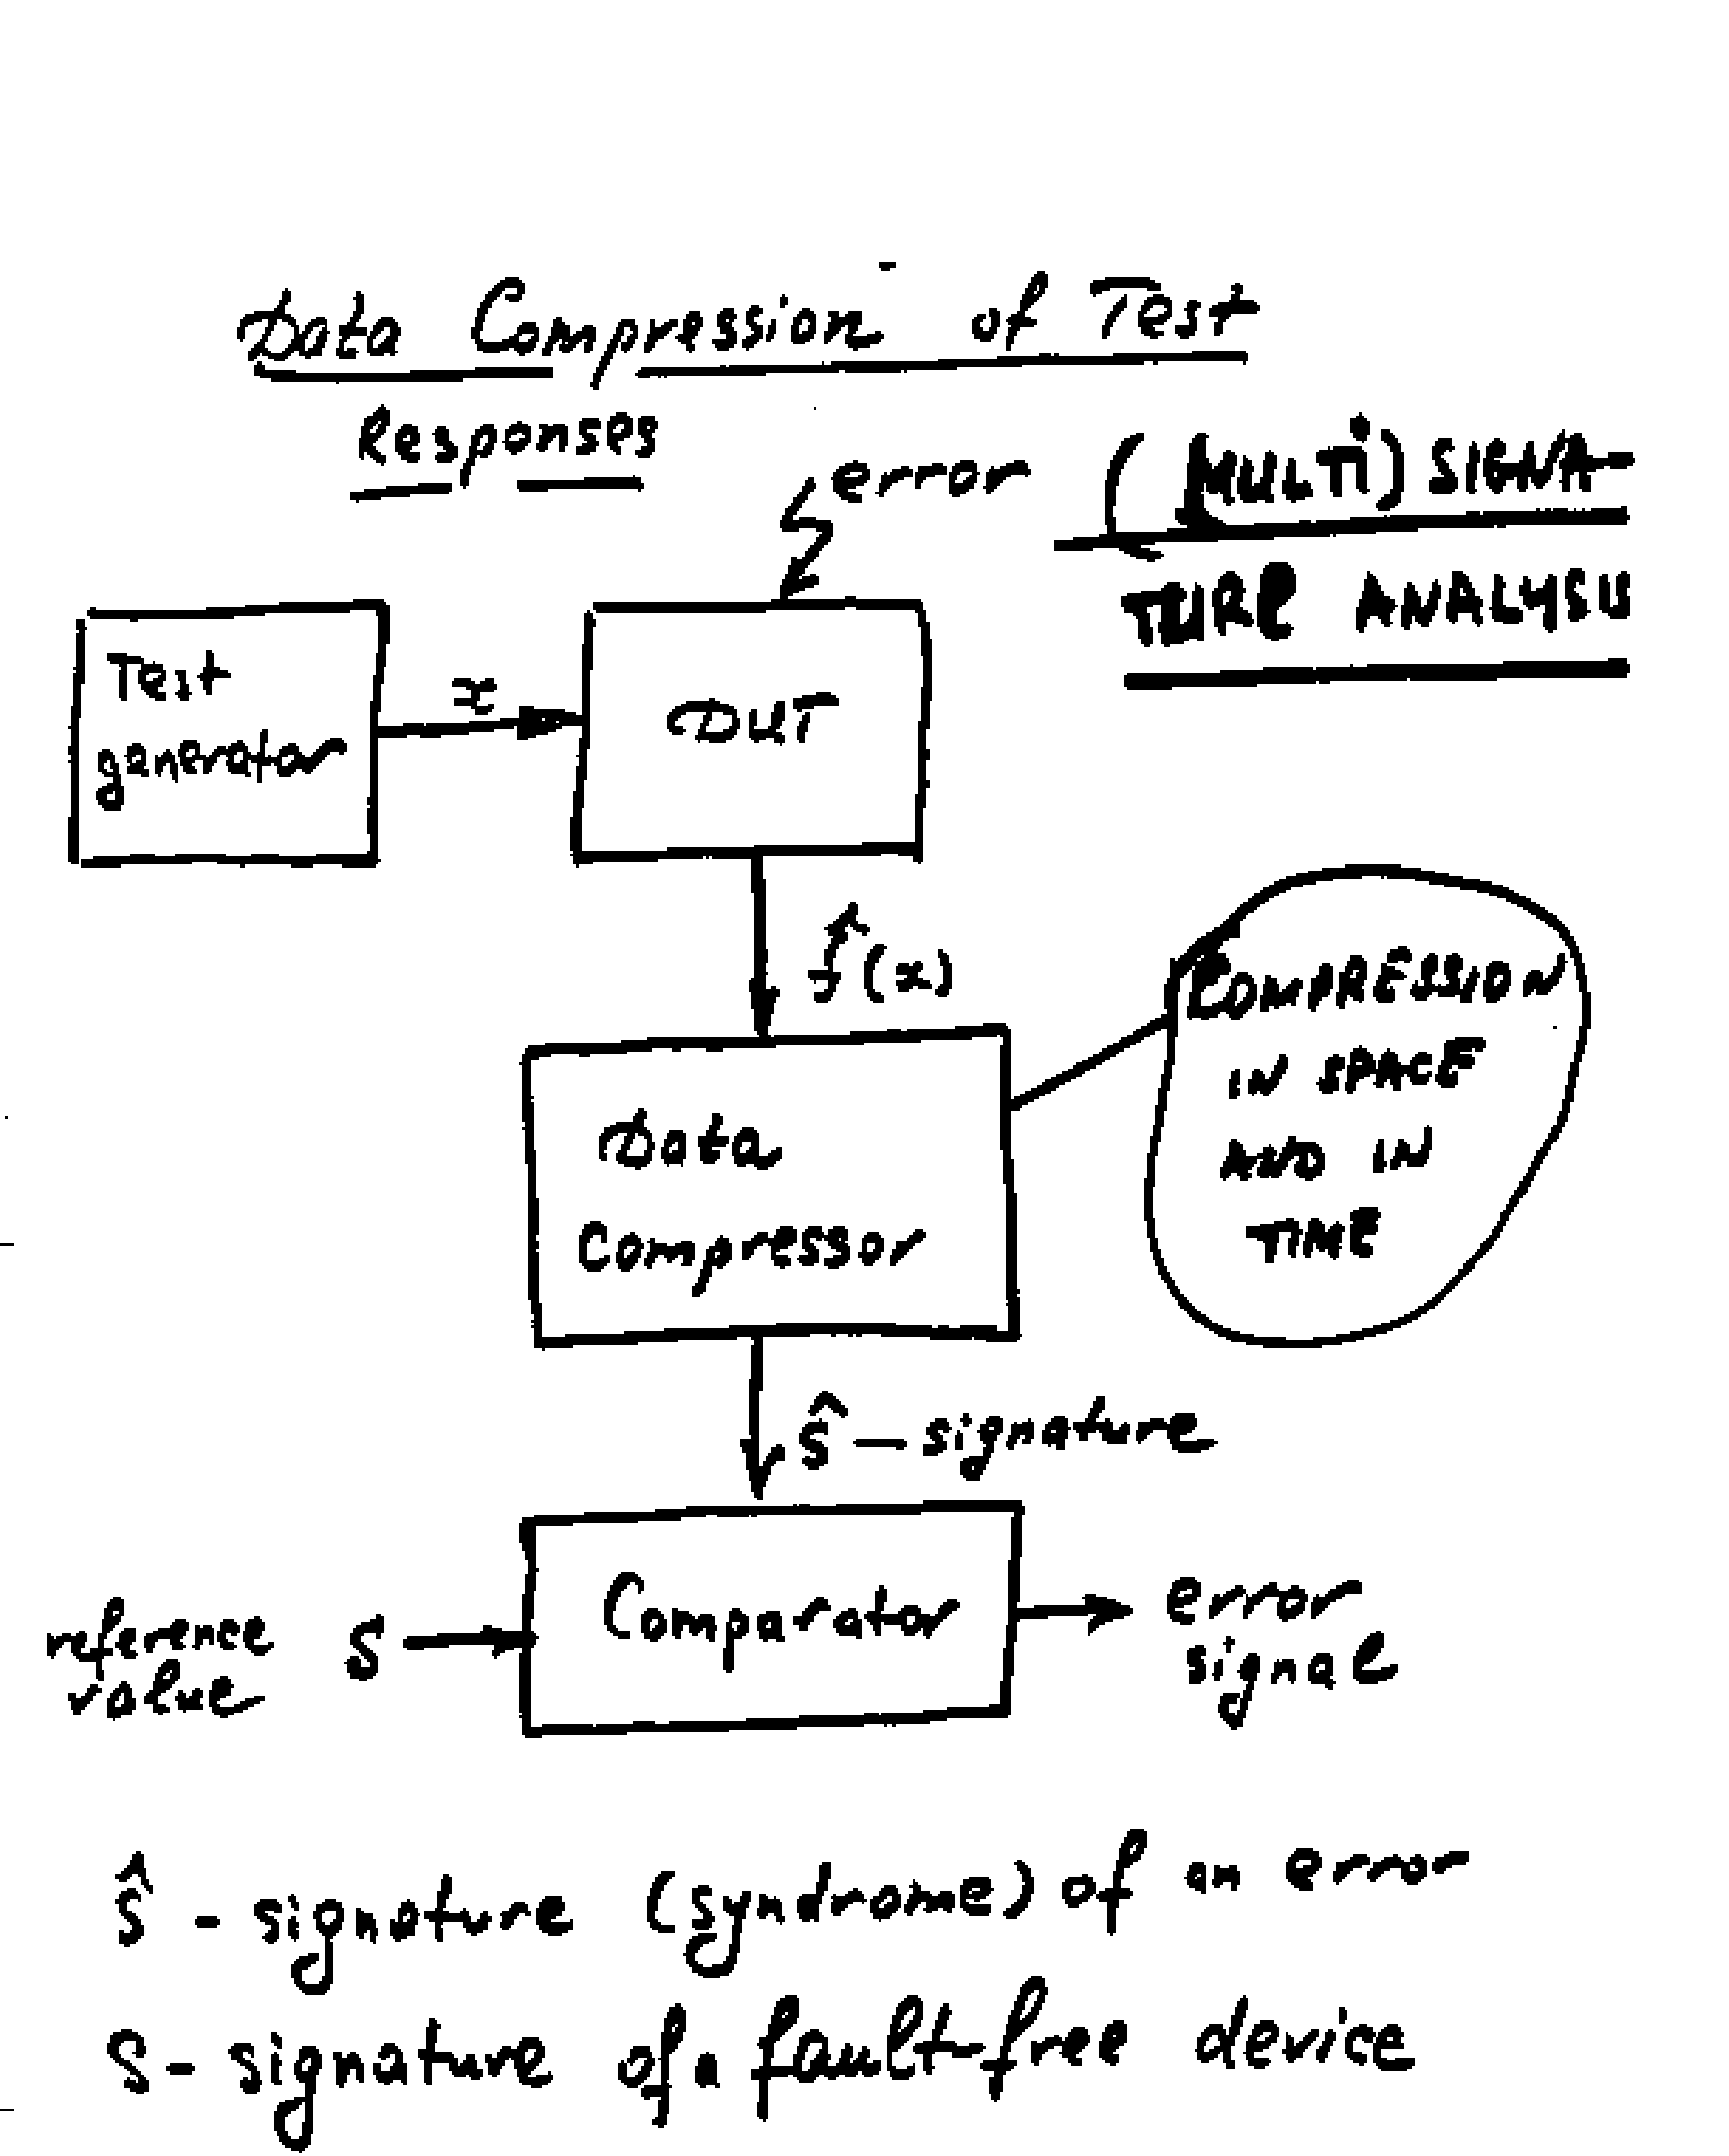 Data Compression of Test
Responses
error
(MULTI) SIGNA-
TURE ANALYSIS
Test
generator
x
DUT
f̂(x)
COMPRESSION
IN SPACE
AND IN
TIME
Data
Compressor
ŝ — signature
reference
value
S
Comparator
error
signal
ŝ - signature (syndrome) of an error
S - signature of a fault-free device